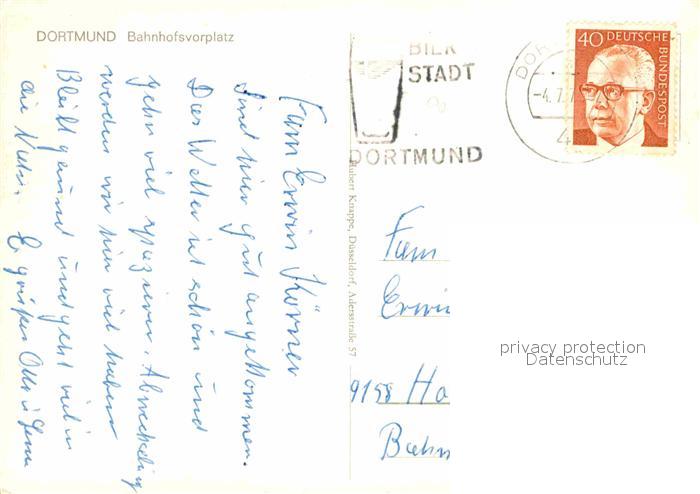 DORTMUND Bahnhofsvorplatz
BIER
STADT
DORTMUND
40 DEUTSCHE
BUNDESPOST
-4.7.7
Fam Erwin Körner
Sind hier gut angekommen.
Das Wetter ist schön und
gehn viel spazieren. Abwechslung
werden wir hier viel haben
Bleibt gesund und geht viel in
die Natur. Es grüßen Otto u.
Hubert Knappe, Düsseldorf, Adersstraße 57
Fam
Erwi
9158 Ha
Bahn
privacy protection
Datenschutz